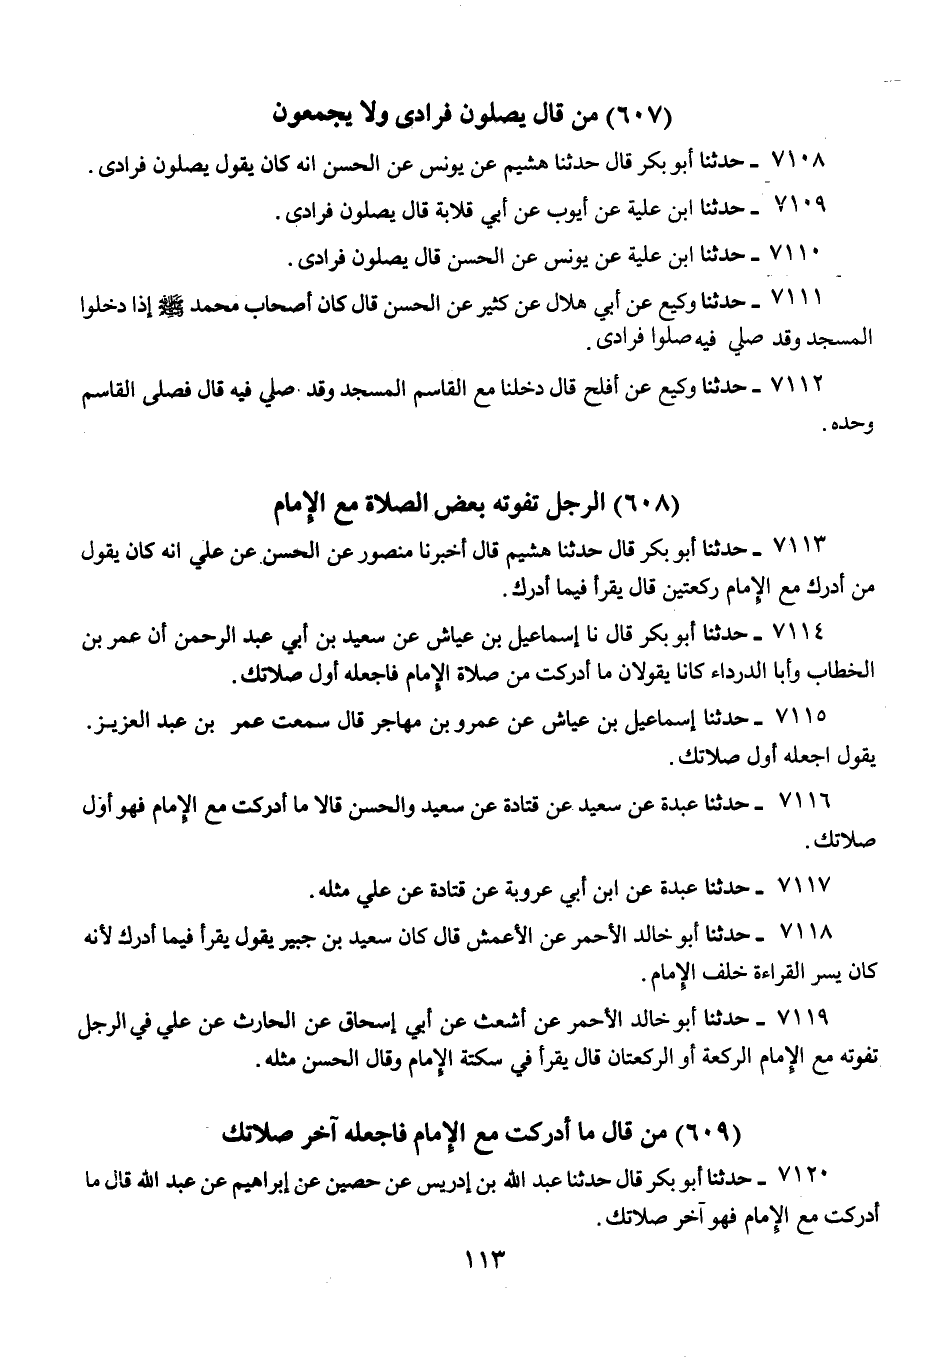 (٦٠٧) من قال يصلون فرادى ولا يجمعون
٧١٠٨ ـ حدثنا أبو بكر قال حدثنا هشيم عن يونس عن الحسن انه كان يقول يصلون فرادى .
٧١٠٩ ـ حدثنا ابن علية عن أيوب عن أبي قلابة قال يصلون فرادى .
٧١١٠ ـ حدثنا ابن علية عن يونس عن الحسن قال يصلون فرادى .
٧١١١ ـ حدثنا وكيع عن أبي هلال عن كثير عن الحسن قال كان أصحاب محمد ﷺ إذا دخلوا
المسجد وقد صلي فيه صلوا فرادى .
٧١١٢ ـ حدثنا وكيع عن أفلح قال دخلنا مع القاسم المسجد وقد صلي فيه قال فصلى القاسم
وحده .
(٦٠٨) الرجل تفوته بعض الصلاة مع الإمام
٧١١٣ ـ حدثنا أبو بكر قال حدثنا هشيم قال أخبرنا منصور عن الحسن عن علي انه كان يقول
من أدرك مع الإمام ركعتين قال يقرأ فيما أدرك .
٧١١٤ ـ حدثنا أبو بكر قال نا إسماعيل بن عياش عن سعيد بن أبي عبد الرحمن أن عمر بن
الخطاب وأبا الدرداء كانا يقولان ما أدركت من صلاة الإمام فاجعله أول صلاتك .
٧١١٥ ـ حدثنا إسماعيل بن عياش عن عمرو بن مهاجر قال سمعت عمر بن عبد العزيز .
يقول اجعله أول صلاتك .
٧١١٦ ـ حدثنا عبدة عن سعيد عن قتادة عن سعيد والحسن قالا ما أدركت مع الإمام فهو أول
صلاتك .
٧١١٧ ـ حدثنا عبدة عن ابن أبي عروبة عن قتادة عن علي مثله .
٧١١٨ ـ حدثنا أبو خالد الأحمر عن الأعمش قال كان سعيد بن جبير يقول يقرأ فيما أدرك لأنه
كان يسر القراءة خلف الإمام .
٧١١٩ ـ حدثنا أبو خالد الأحمر عن أشعث عن أبي إسحاق عن الحارث عن علي في الرجل
تفوته مع الإمام الركعة أو الركعتان قال يقرأ في سكتة الإمام وقال الحسن مثله .
(٦٠٩) من قال ما أدركت مع الإمام فاجعله آخر صلاتك
٧١٢٠ ـ حدثنا أبو بكر قال حدثنا عبد الله بن إدريس عن حصين عن إبراهيم عن عبد الله قال ما
أدركت مع الإمام فهو آخر صلاتك .
١١٣